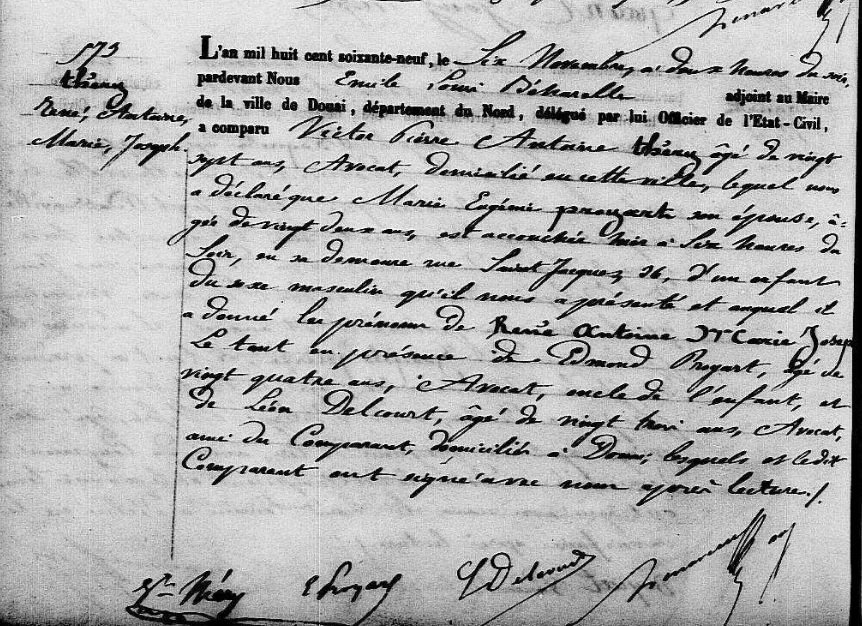 573
théry
René, Antoine,
Marie, Joseph.
L'an mil huit cent soixante-neuf, le Six Novembre, à deux heures du soir,
pardevant Nous Emile Louis adjoint au Maire
de la ville de Douai, département du Nord, délégué par lui Officier de l'Etat-Civil,
a comparu Victor Pierre Antoine théry âgé de vingt
sept ans, Avocat, domicilié en cette ville, lequel nous
a déclaré que Marie Eugénie proyart son épouse, â-
gée de vingt deux ans, est accouchée hier à Six heures du
Soir, en sa demeure rue Saint Jacques, 26, d'un enfant
du sexe masculin qu'il nous a présenté et auquel il
a donné les prénoms de René antoine Marie Joseph
Le tout en présence de Edmond Proyart, âgé de
vingt quatre ans, Avocat, oncle de l'enfant, et
de Léon Delcourt, âgé de vingt trois ans, Avocat,
ami du Comparant, domiciliés à Douai, lesquels et ledit
Comparant ont signé avec nous après lecture./.
Théry E Proyart L Delcourt